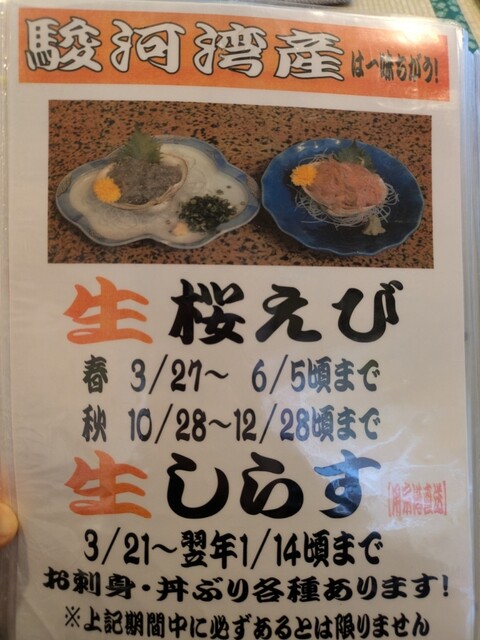 駿河湾産は一味ちがう!
生桜えび
春 3/27～ 6/5頃まで
秋 10/28～12/28頃まで
生しらす【用宗港直送】
3/21～翌年1/14頃まで
お刺身・丼ぶり各種あります!
※上記期間中に必ずあるとは限りません